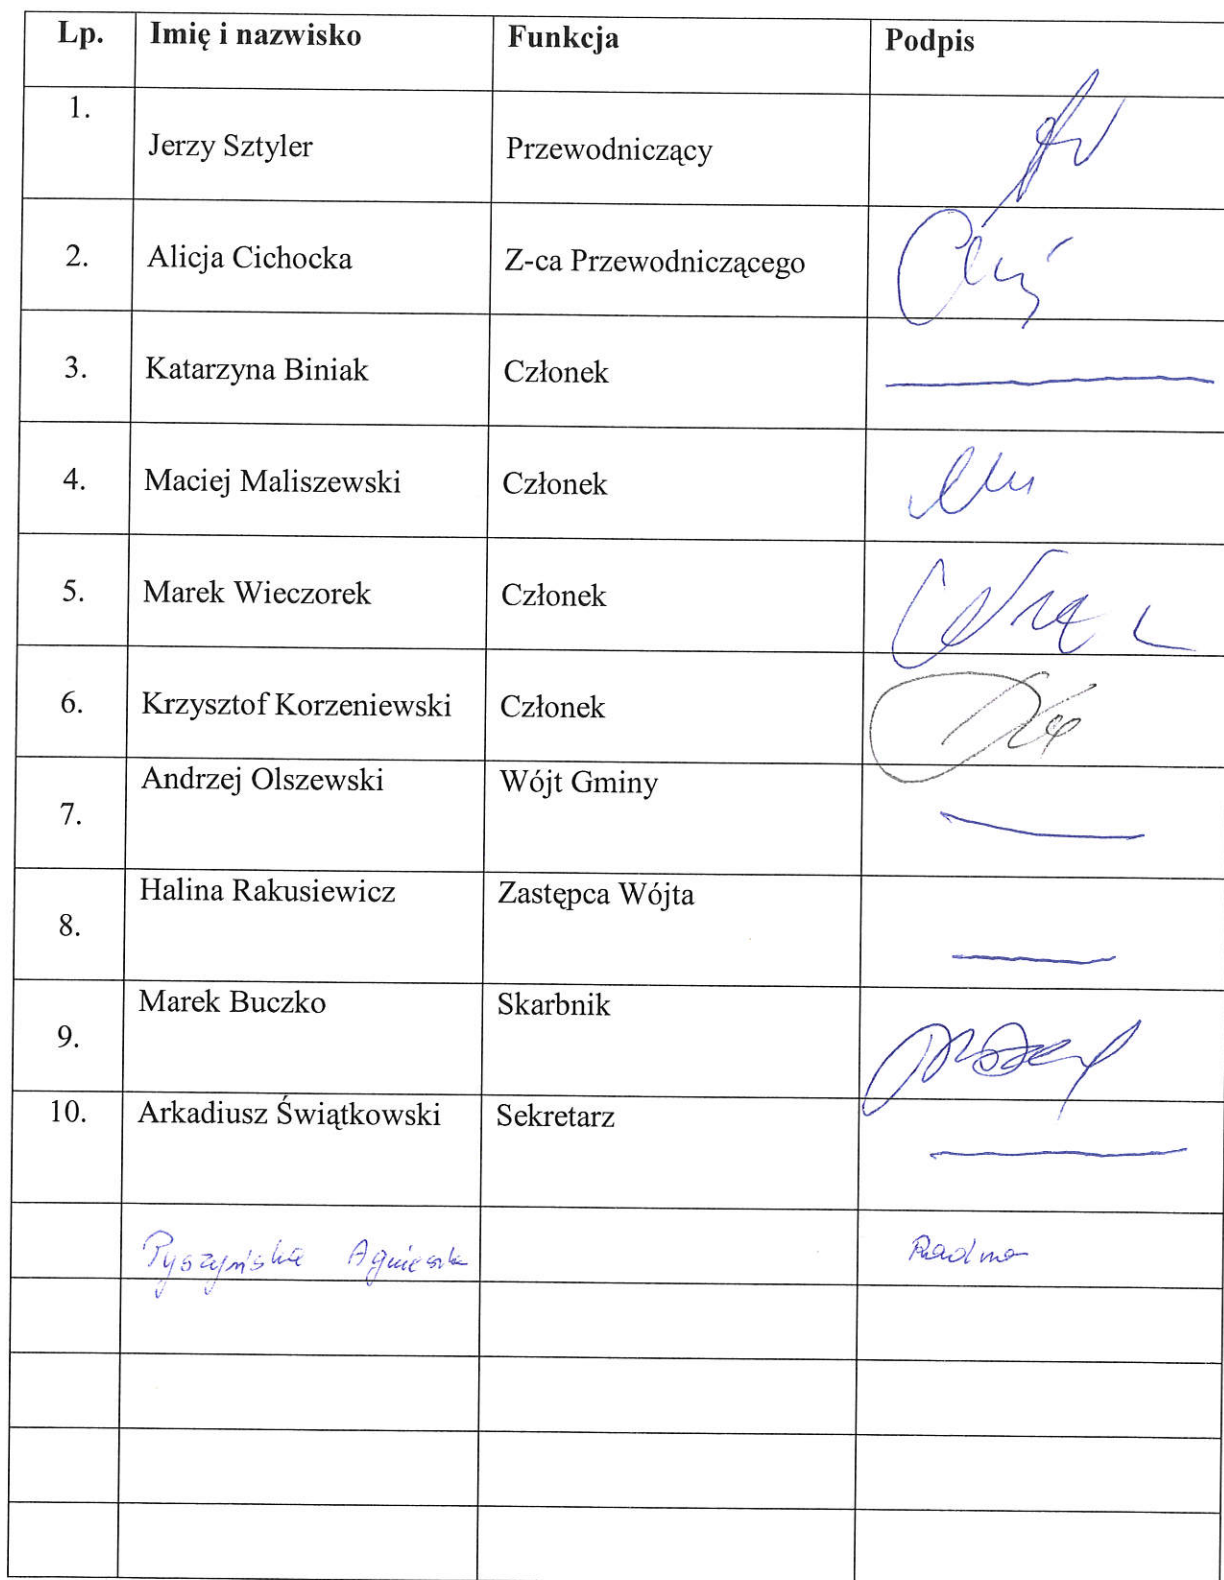 Lp. Imię i nazwisko Funkcja Podpis
1. Jerzy Sztyler Przewodniczący
2. Alicja Cichocka Z-ca Przewodniczącego
3. Katarzyna Biniak Członek
4. Maciej Maliszewski Członek
5. Marek Wieczorek Członek
6. Krzysztof Korzeniewski Członek
7. Andrzej Olszewski Wójt Gminy
8. Halina Rakusiewicz Zastępca Wójta
9. Marek Buczko Skarbnik
10. Arkadiusz Świątkowski Sekretarz
Pyszyńska Agnieszka Radna